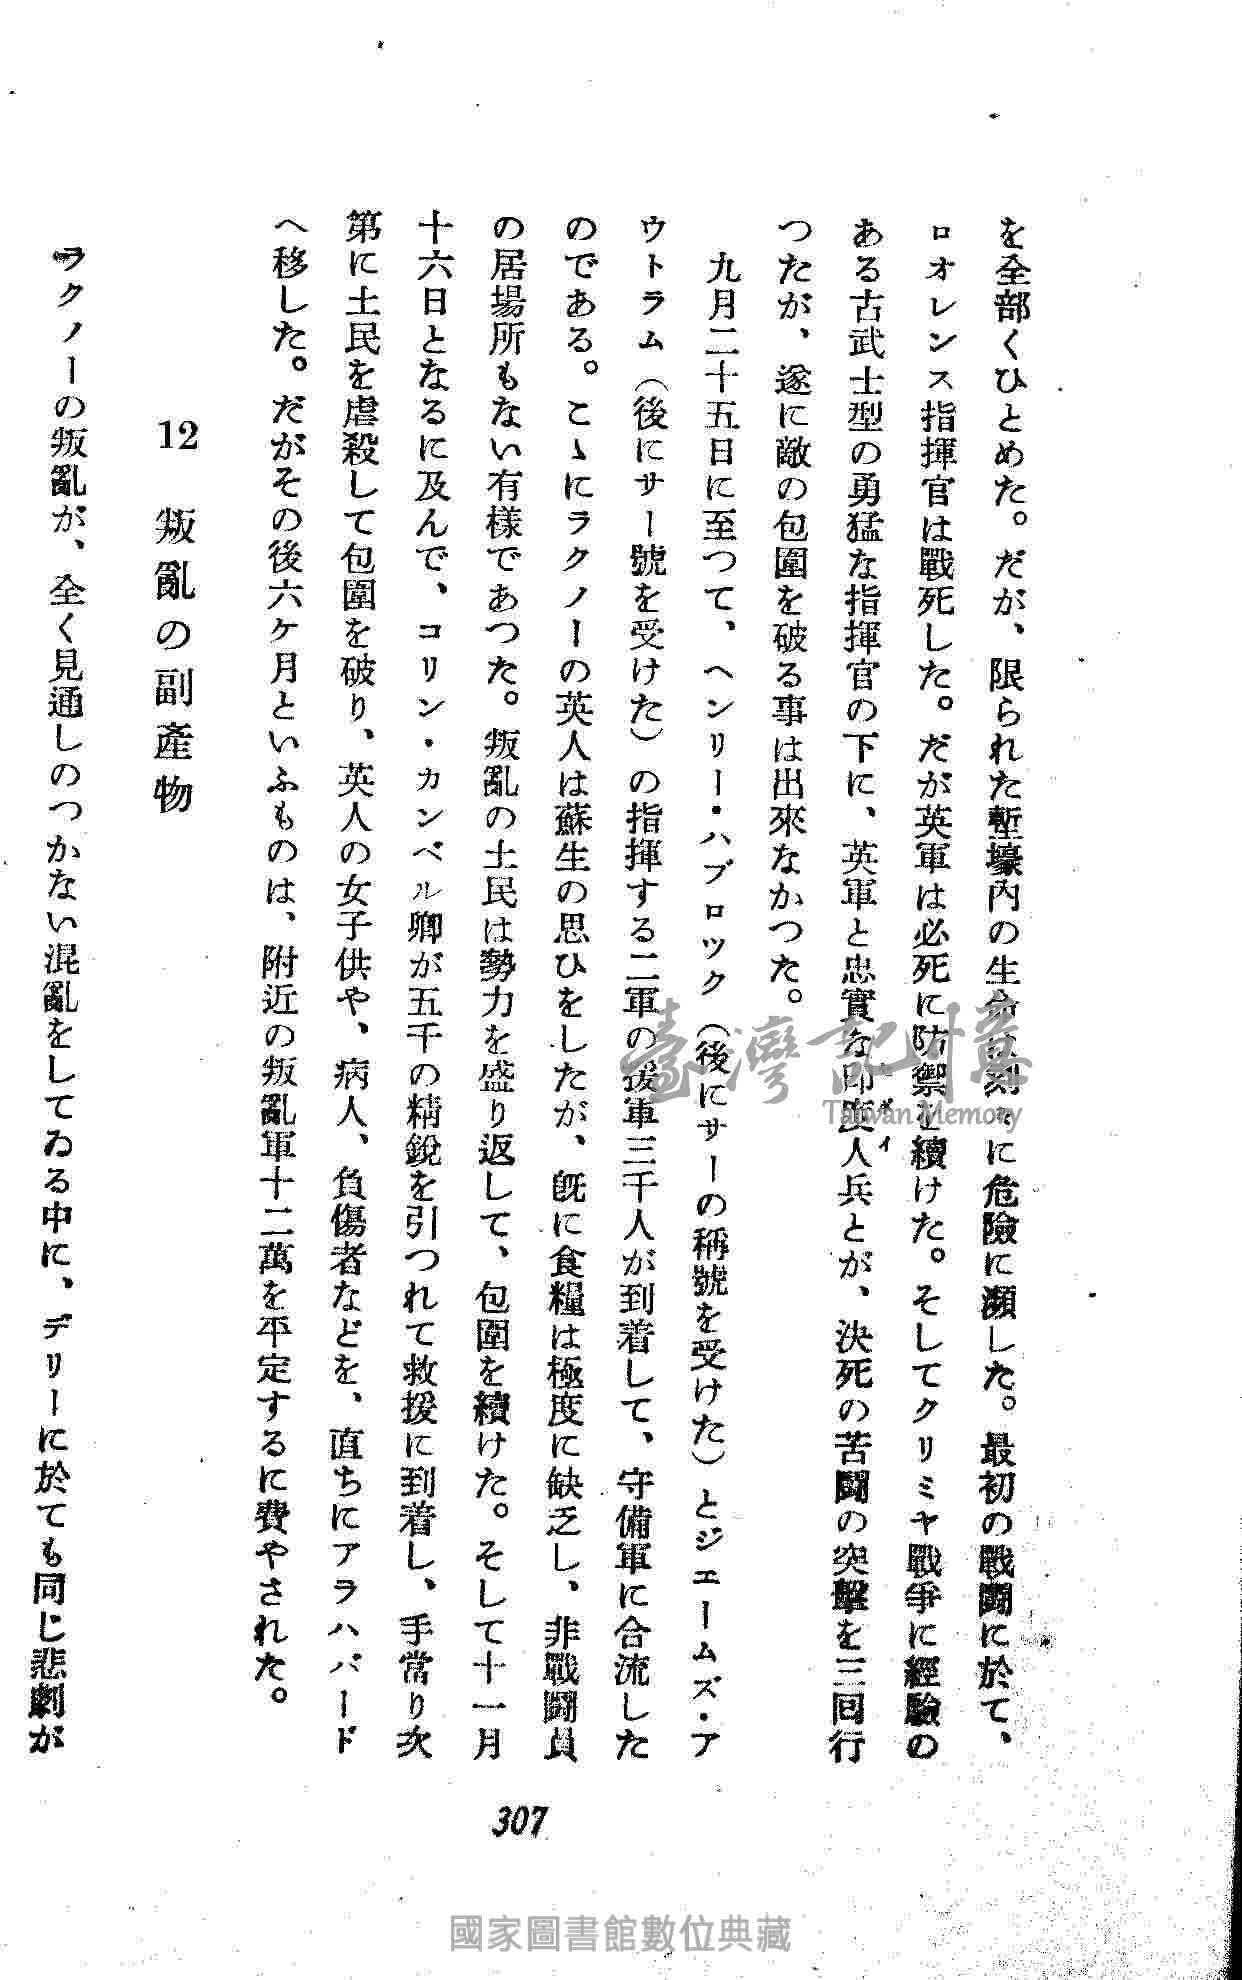 を全部くひとめた。だが、限られた塹壕內の生命は刻々に危險に瀕した。最初の戰鬪に於て、
ロオレンス指揮官は戰死した。だが英軍は必死に防禦を續けた。そしてクリミヤ戰爭に經驗の
ある古武士型の勇猛な指揮官の下に、英軍と忠實な印度人兵とが、決死の苦鬪の突擊を三回行
つたが、遂に敵の包圍を破る事は出來なかつた。
九月二十五日に至つて、ヘンリー・ハブロツク（後にサーの稱號を受けた）とジエームズ・ア
ウトラム（後にサー號を受けた）の指揮する二軍の援軍三千人が到着して、守備軍に合流した
のである。こゝにラクノーの英人は蘇生の思ひをしたが、旣に食糧は極度に缺乏し、非戰鬪員
の居場所もない有樣であつた。叛亂の土民は勢力を盛り返して、包圍を續けた。そして十一月
十六日となるに及んで、コリン・カンベル卿が五千の精銳を引つれて救援に到着し、手當り次
第に土民を虐殺して包圍を破り、英人の女子供や、病人、負傷者などを、直ちにアラハバード
へ移した。だがその後六ケ月といふものは、附近の叛亂軍十二萬を平定するに費やされた。
12 叛亂の副產物
ラクノーの叛亂が、全く見通しのつかない混亂をしてゐる中に、デリーに於ても同じ悲劇が
307
臺灣記憶
Taiwan Memory
國家圖書館數位典藏